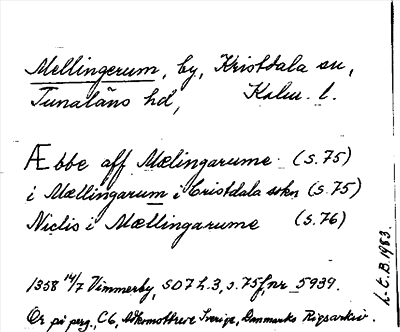 Mellingerum, by, Kristdala sn,
Tunaläns hd, Kalm. l.
Æbbe aff Mælingarume (s.75)
i Mællingarum i Cristdala sokn (s.75)
Niclis i Mællingarume (s.76)
1358 14/7 Vimmerby, SD7 h.3, s.75f, nr 5939.
Or på perg., C6, Adkomstbreve Sverige, Danmarks Rigsarkiv.
L.E.B. 1983.